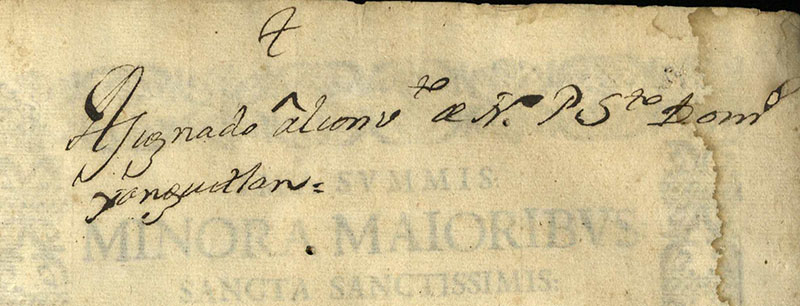 Asignado al conv.to de N. P. S.to Dom.o
Yanguitlan =
SVMMIS
MINORA MAIORIBVS
SANCTA SANCTISSIMIS: